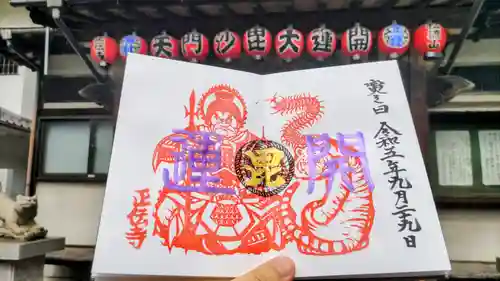 開運大毘沙門天
寅之日 令和五年九月二十九日
開毘運
正伝寺